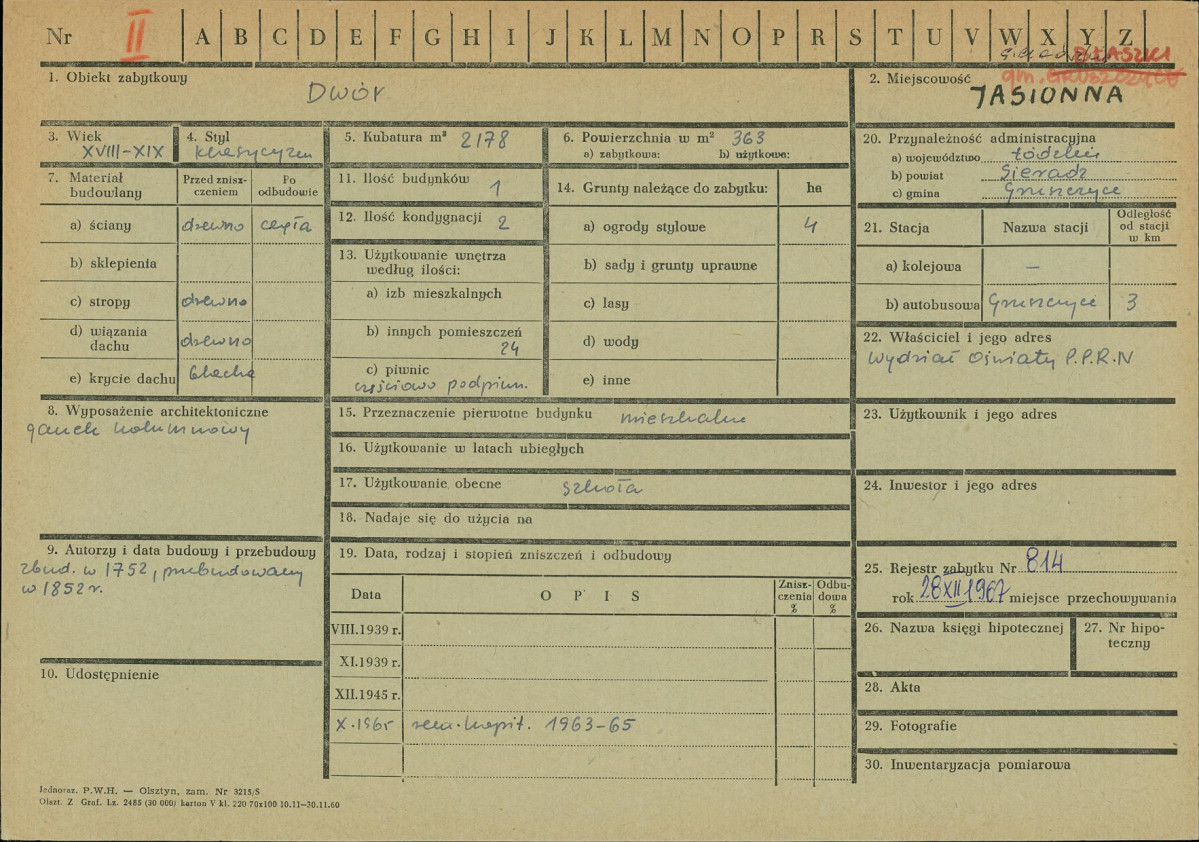 Nr II A B C D E F G H I J K L M N O P R S T U V W X Y Z
BŁASZKI
gm. GRUSZCZYCE
1. Obiekt zabytkowy
Dwór
2. Miejscowość
JASIONNA
3. Wiek
XVIII-XIX
4. Styl
klasycyzm
5. Kubatura m³ 2178
6. Powierzchnia w m² 363
a) zabytkowa: b) użytkowa:
7. Materiał budowlany
Przed zniszczeniem
Po odbudowie
a) ściany drewno cegła
b) sklepienia
c) stropy drewno
d) wiązania dachu drewno
e) krycie dachu blacha
8. Wyposażenie architektoniczne
ganek kolumnowy
9. Autorzy i data budowy i przebudowy
zbud. w 1752, przebudowany
w 1852 r.
10. Udostępnienie
11. Ilość budynków 1
12. Ilość kondygnacji 2
13. Użytkowanie wnętrza
według ilości:
a) izb mieszkalnych
b) innych pomieszczeń
24
c) piwnic
częściowo podpiwn.
14. Grunty należące do zabytku: ha
a) ogrody stylowe 4
b) sady i grunty uprawne
c) lasy
d) wody
e) inne
15. Przeznaczenie pierwotne budynku mieszkalne
16. Użytkowanie w latach ubiegłych
17. Użytkowanie obecne szkoła
18. Nadaje się do użycia na
19. Data, rodzaj i stopień zniszczeń i odbudowy
Data
O P I S
Zniszczenia %
Odbudowa %
VIII.1939 r.
XI.1939 r.
XII.1945 r.
X.1965 rem. kapit. 1963-65
20. Przynależność administracyjna
a) województwo łódzkie
b) powiat Sieradz
c) gmina Gruszczyce
21. Stacja
Nazwa stacji
Odległość od stacji w km
a) kolejowa —
b) autobusowa Gruszczyce 3
22. Właściciel i jego adres
Wydział Oświaty P.P.R.N
23. Użytkownik i jego adres
24. Inwestor i jego adres
25. Rejestr zabytku Nr 814
rok 28 XII 1967 miejsce przechowywania
26. Nazwa księgi hipotecznej
27. Nr hipoteczny
28. Akta
29. Fotografie
30. Inwentaryzacja pomiarowa
Jednoraz. P.W.H. — Olsztyn, zam. Nr 3215/S
Olszt. Z Graf. Lz. 2485 (30 000) karton V kl. 220 70x100 10.11-30.11.60